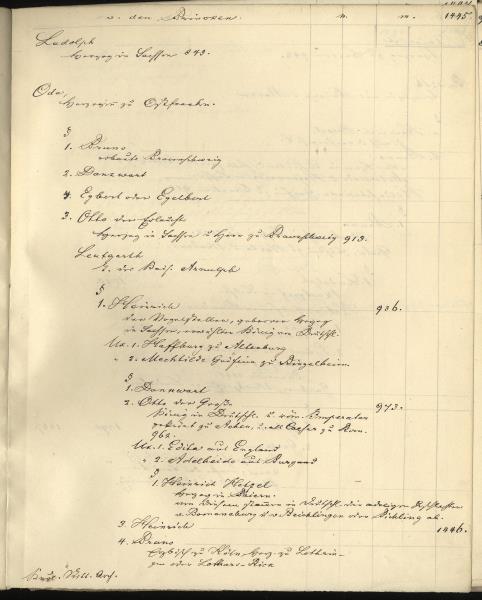 v. den Brincken. n. m. 1445.
Ludolph
Herzog in Sachsen 843.
Oda,
Herzogin zu Ostfranken.
§
1. Bruno
erbaute Braunschweig
2. Danzwart
4. Egbert oder Egelbert
3. Otto der Erlauchte
Herzog in Sachsen u Herr zu Braunschweig 913.
Leutgarth
T. des Kais. Arnulph
§
1. Heinrich 936.
der Vogelsteller, geborner Herzog
in Sachsen, erwählter König in Deutschl.
Ux. 1. Hatburg zu Altenburg
" 2. Mechtilde Gräfin zu Ringelheim
§
1. Dannwart
2. Otto der Große 973.
König in Deutschl. u röm. Imperator
gekrönt zu Aachen, u. als Caesar zu Rom.
962.
Ux. 1. Edita aus England
" 2. Adelheide aus Burgund
§
1. Heinrich Hetzel
Herzog in Baiern
von diesem stammen in Deutschl. die adeligen Geschlechter
v. u. v. Beichlingen oder Bichling ab.
3. Heinrich 1446.
4. Bruno
Erzbisch. zu Köln, Herz. zu Lothrin-
gen oder Lothars-Reich
Arch.